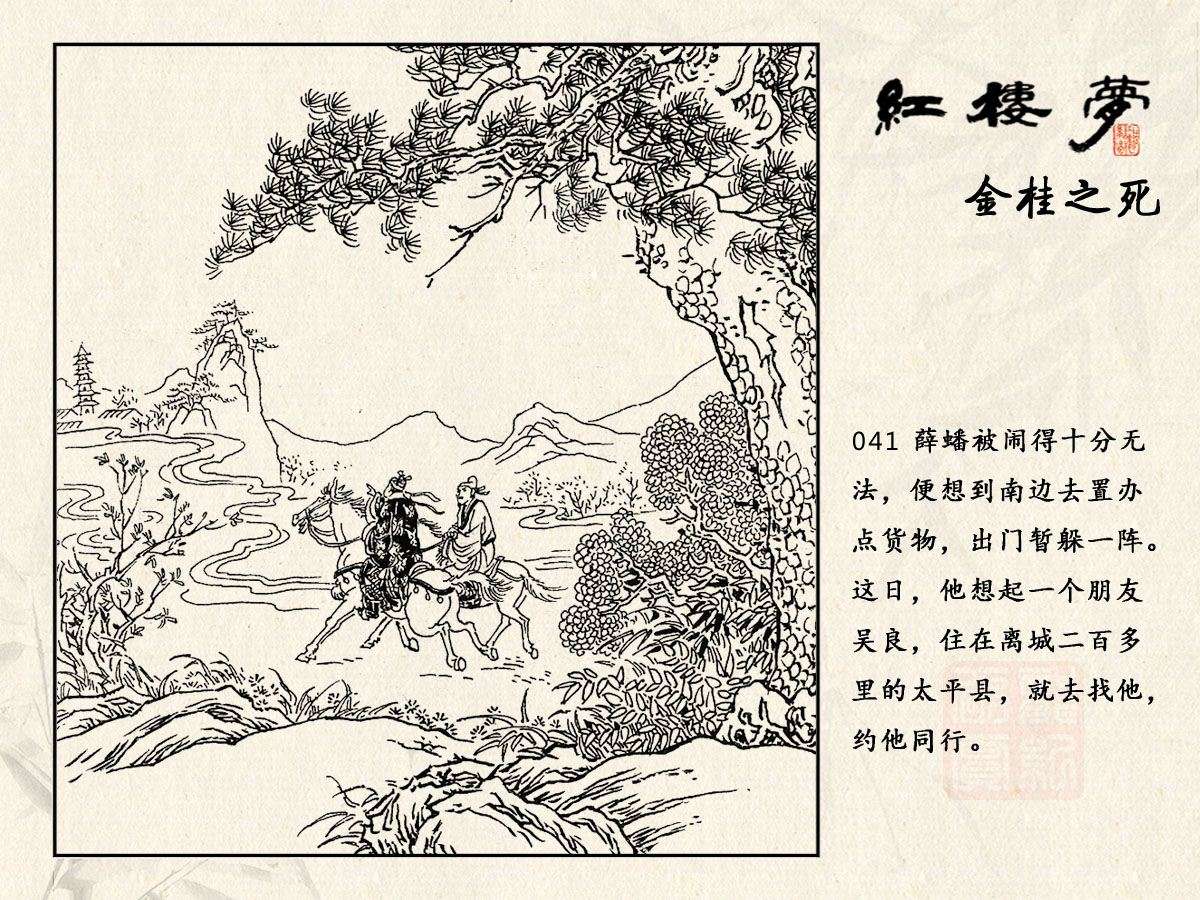 紅樓夢
金桂之死
041 薛蟠被闹得十分无
法，便想到南边去置办
点货物，出门暂躲一阵。
这日，他想起一个朋友
吴良，住在离城二百多
里的太平县，就去找他，
约他同行。